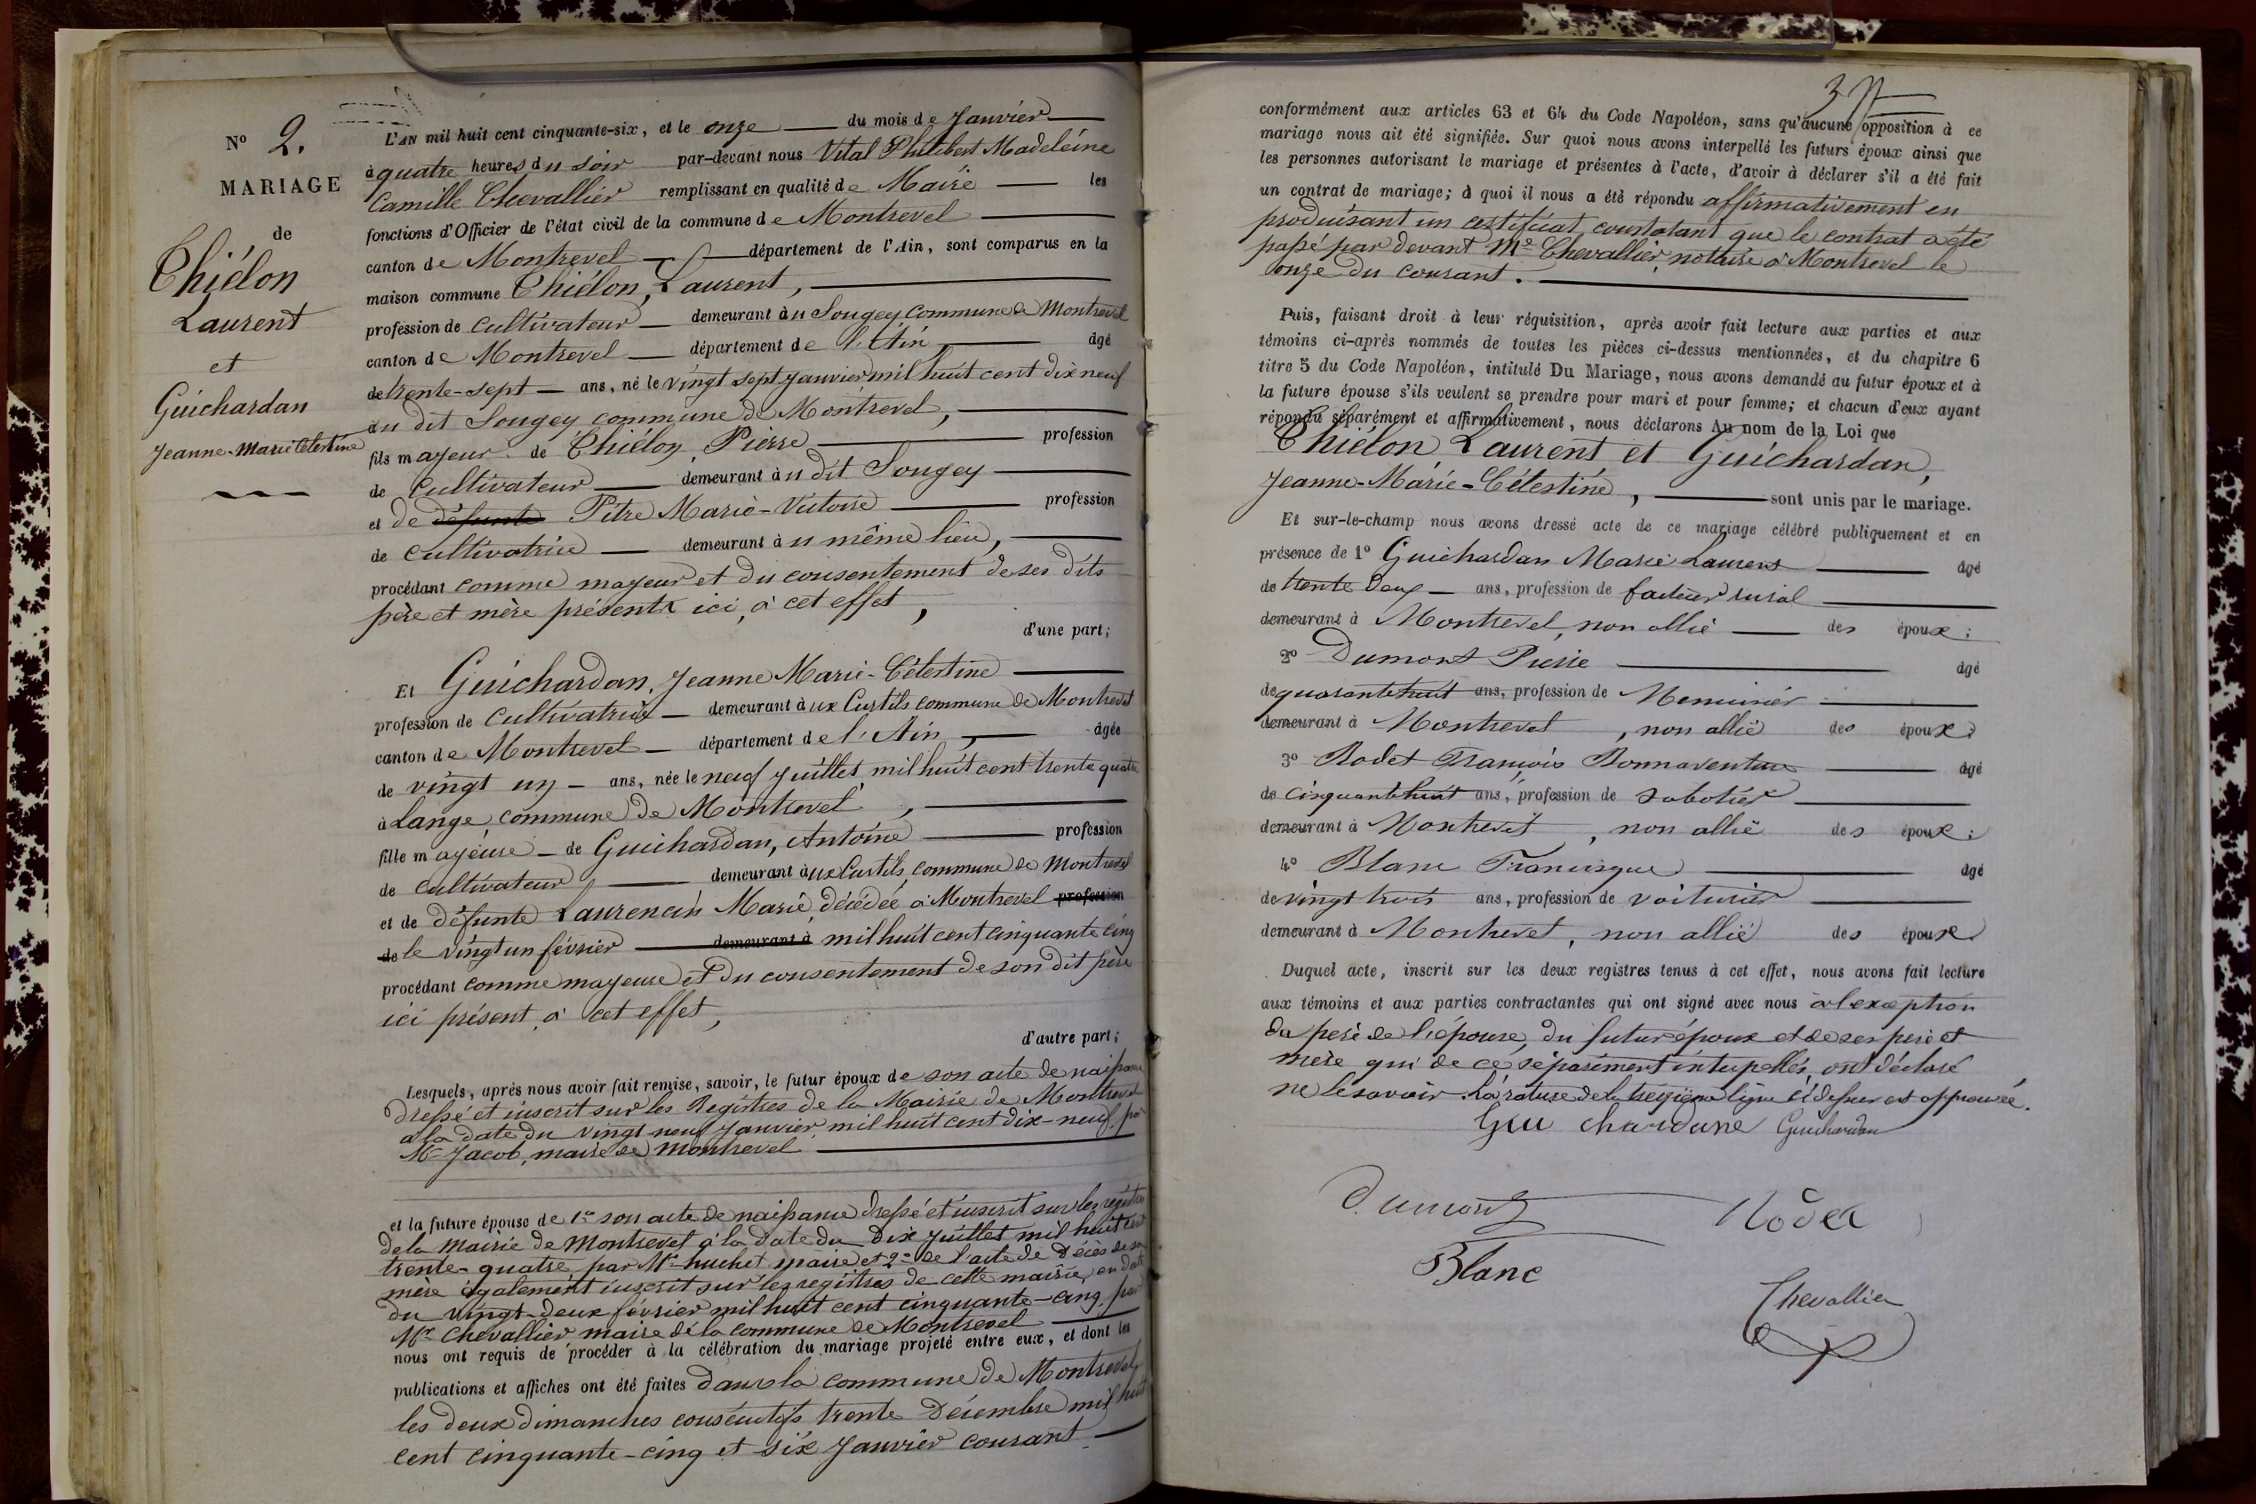 N° 2.
MARIAGE
de
Thiélon
Laurent
et
Guichardan
Jeanne-Marie Célestine
L'AN mil huit cent cinquante-six, et le onze du mois de Janvier
à quatre heures du soir par-devant nous Vital Philibert Madeleine
Camille Chevallier remplissant en qualité de Maire les
fonctions d'Officier de l'état civil de la commune de Montrevel
canton de Montrevel département de l'Ain, sont comparus en la
maison commune Thiélon, Laurent,
profession de cultivateur demeurant au Sougey commune de Montrevel
canton de Montrevel département de l'Ain, âgé
de trente-sept ans, né le vingt sept janvier mil huit cent dix neuf
au dit Sougey commune de Montrevel,
fils mayeur de Thiélon, Pierre profession
de cultivateur demeurant au dit Sougey
et de défunte Pitre Marie-Victoire profession
de cultivatrice demeurant au même lieu,
procédant comme mayeur et du consentement de ses dits
père et mère présents ici, à cet effet,
d'une part;
Et Guichardan, Jeanne Marie-Célestine
profession de cultivatrice demeurant aux Curtils commune de Montrevel
canton de Montrevel département de l'Ain, âgée
de vingt un ans, née le neuf juillet mil huit cent trente quatre
à Lange, commune de Montrevel,
fille mayeure de Guichardan, Antoine profession
de cultivateur demeurant aux Curtils, commune de Montrevel
et de défunte Laurencin Marie, décédée à Montrevel profession
de le vingt un février demeurant à mil huit cent cinquante cinq
procédant comme mayeure et du consentement de son dit père
ici présent, à cet effet,
d'autre part;
Lesquels, après nous avoir fait remise, savoir, le futur époux de son acte de naissance
dressé et inscrit sur les Registres de la Mairie de Montrevel
à la date du vingt neuf janvier mil huit cent dix-neuf, par
Mr Jacob, maire de Montrevel
et la future épouse de 1° son acte de naissance dressé et inscrit sur les registres
de la Mairie de Montrevel à la date du dix juillet mil huit cent
trente-quatre par Mr huchet maire et 2° de l'acte de Décès de sa
mère également inscrit sur les registres de cette mairie, en date
du vingt-deux février mil huit cent cinquante-cinq, par
Mr Chevallier maire de la commune de Montrevel
nous ont requis de procéder à la célébration du mariage projeté entre eux, et dont les
publications et affiches ont été faites dans la commune de Montrevel,
les deux dimanches consécutifs trente Décembre mil huit
cent cinquante-cinq et six Janvier courant
conformément aux articles 63 et 64 du Code Napoléon, sans qu'aucune opposition à ce
mariage nous ait été signifiée. Sur quoi nous avons interpellé les futurs époux ainsi que
les personnes autorisant le mariage et présentes à l'acte, d'avoir à déclarer s'il a été fait
un contrat de mariage; à quoi il nous a été répondu affirmativement en
produisant un certificat, constatant que le contrat a été
passé par devant Me Chevallier, notaire à Montrevel le
onze du courant.
Puis, faisant droit à leur réquisition, après avoir fait lecture aux parties et aux
témoins ci-après nommés de toutes les pièces ci-dessus mentionnées, et du chapitre 6
titre 5 du Code Napoléon, intitulé Du Mariage, nous avons demandé au futur époux et à
la future épouse s'ils veulent se prendre pour mari et pour femme; et chacun d'eux ayant
répondu séparément et affirmativement, nous déclarons Au nom de la Loi que
Thiélon Laurent et Guichardan,
Jeanne-Marie-Célestine, sont unis par le mariage.
Et sur-le-champ nous avons dressé acte de ce mariage célébré publiquement et en
présence de 1° Guichardan Marie Laurent âgé
de trente deux ans, profession de facteur rural
demeurant à Montrevel, non allié des époux;
2° Dumont Pierre âgé
de quarante huit ans, profession de Menuisier
demeurant à Montrevel, non allié des époux;
3° Rodet François Bonnaventure âgé
de cinquante huit ans, profession de sabotier
demeurant à Montrevel, non allié des époux;
4° Blanc Francisque âgé
de vingt trois ans, profession de voiturier
demeurant à Montrevel, non allié des époux
Duquel acte, inscrit sur les deux registres tenus à cet effet, nous avons fait lecture
aux témoins et aux parties contractantes qui ont signé avec nous à l'exception
du père de l'épouse, du futur époux et de ses père et
mère qui de ce séparément interpellés, ont déclaré
ne le savoir. La rature de la treizième ligne ci dessus est approuvée.
Gui chardane Guichardan
Dumont Rodet
Blanc
Chevallier